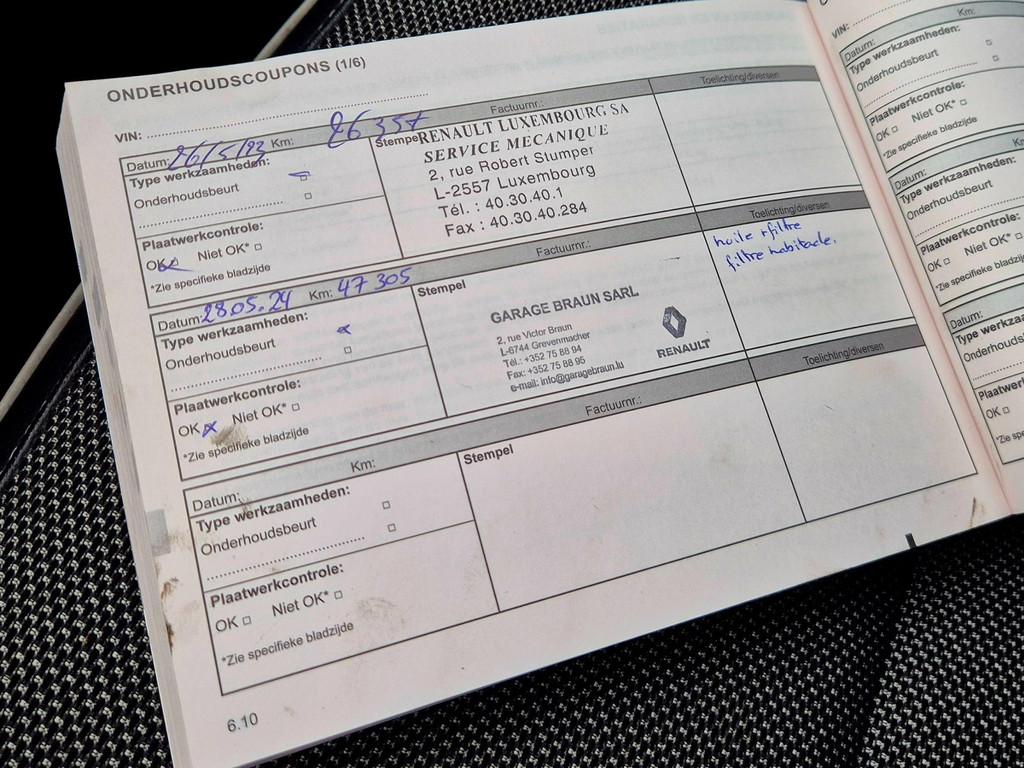 ONDERHOUDSCOUPONS (1/6)
VIN:
Datum: 26/5/23 Km: 26357 Factuurnr.:
Type werkzaamheden:
Onderhoudsbeurt
Plaatwerkcontrole:
OK Niet OK*
*Zie specifieke bladzijde
Stempel
RENAULT LUXEMBOURG SA
SERVICE MECANIQUE
2, rue Robert Stumper
L-2557 Luxembourg
Tél. : 40.30.40.1
Fax : 40.30.40.284
Toelichting/diversen
Datum: 28.05.24 Km: 47 305 Factuurnr.:
Type werkzaamheden:
Onderhoudsbeurt
Plaatwerkcontrole:
OK Niet OK*
*Zie specifieke bladzijde
Stempel
GARAGE BRAUN SARL
2, rue Victor Braun
L-6744 Grevenmacher
Tél.: +352 75 88 94
Fax: +352 75 88 95
e-mail: info@garagebraun.lu
RENAULT
Toelichting/diversen
huile + filtre
filtre habitacle.
Datum: Km: Factuurnr.:
Type werkzaamheden:
Onderhoudsbeurt
Plaatwerkcontrole:
OK Niet OK*
*Zie specifieke bladzijde
Stempel
Toelichting/diversen
6.10
VIN:
Datum: Km:
Type werkzaamheden:
Onderhoudsbeurt
Plaatwerkcontrole:
OK Niet OK*
*Zie specifieke bladzijde
Datum: Km
Type werkzaamheden:
Onderhoudsbeurt
Plaatwerkcontrole:
OK Niet OK*
*Zie specifieke bladzij
Datum:
Type werkza
Onderhoud
Plaatwerkc
OK N
*Zie spec